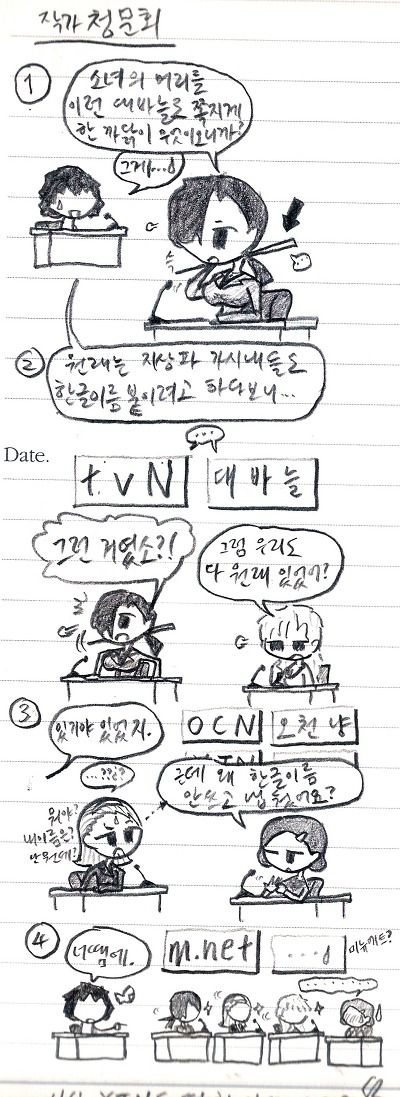 작가 청문회
①
소녀의 머리를
이런 대바늘로 쪽지게
한 까닭이 무엇이오니까?
그게...
②
원래는 지상파 가시내들도
한글이름 붙이려고 하다보니...
...
Date.
tvN
대바늘
그런 거였소?!
그럼 우리도
다 원래 있었어?
③
있기야 있었지.
OCN
오천냥
...??
뭐야?
내이름은?
근데 왜 한글이름
안쓰고 냅뒀어요?
④
너땜에.
m.net
...
미뉴에트?